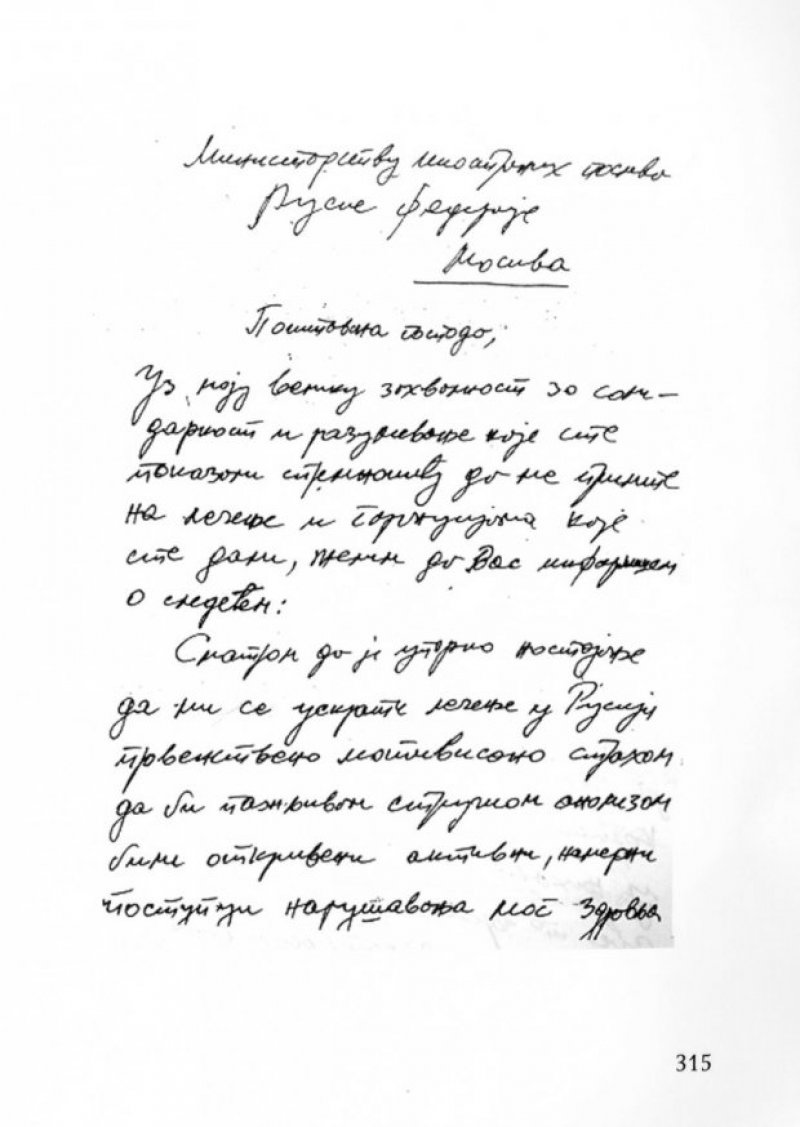 Министарству иностраних послова
Руске Федерације
Москва
Поштована господо,
Уз моју велику захвалност за соли-
дарност и разумевање које сте
показали спремношћу да ме примите
на лечење и гаранцијама које
сте дали, желим да Вас информишем
о следећем:
Сматрам да је упорно настојање
да ми се ускрати лечење у Русији
првенствено мотивисано страхом
да би пажљивом стручном анализом
били откривени активни, намерни
поступци нарушавања мог здравља
315